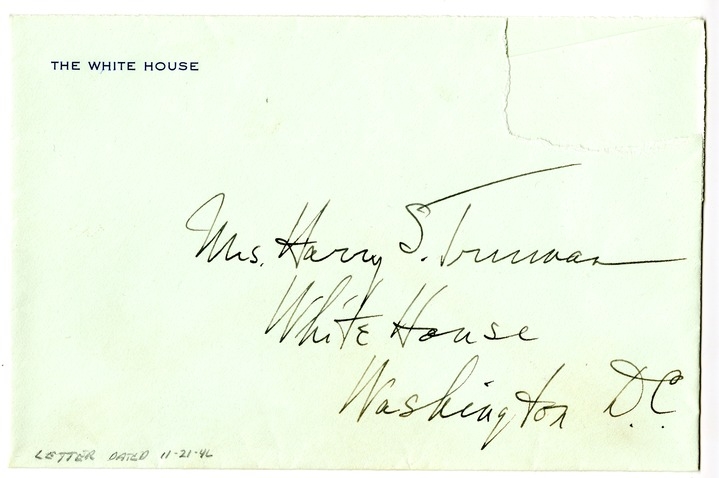 THE WHITE HOUSE
Mrs. Harry S. Truman
White House
Washington D.C.
LETTER DATED 11-21-46